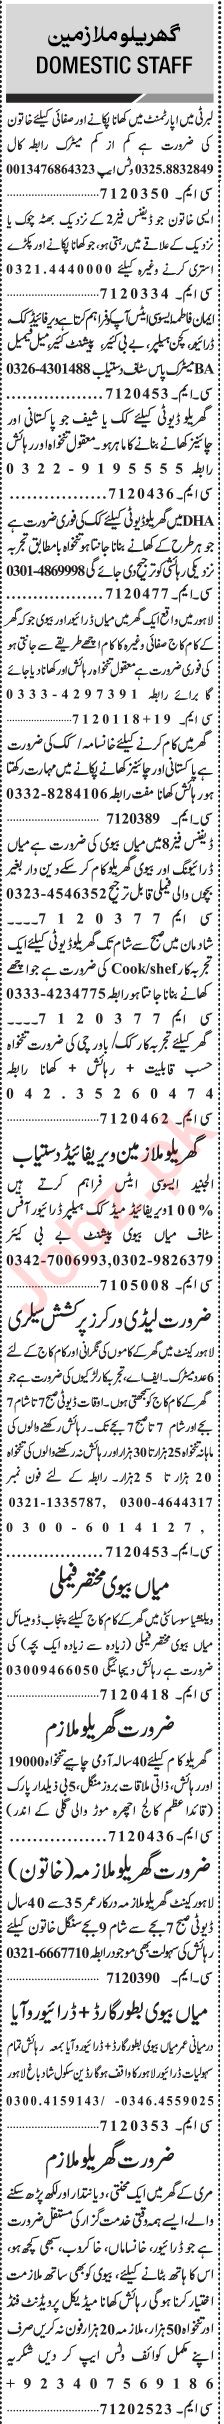 گھریلو ملازمین
DOMESTIC STAFF
لبرٹی میں اپارٹمنٹ میں کھانا پکانے اور صفائی کیلئے خاتون
کی ضرورت ہے کم از کم میٹرک رابطہ کال
0325.8832849 وٹس ایپ 0013476864323
سی ایم۔ 7120350
ایسی خاتون جو ڈیفنس فیز2 کے نزدیک بھٹہ چوک یا
نزدیک کے علاقے میں رہتی ہو، جو کھانا پکانے اور کپڑے
استری کرنے وغیرہ کیلئے 0321.4440000
سی ایم۔ 7120334
ایمان فاطمہ ایسوسی ایٹس آپ کو فراہم کرتا ہے ویریفائیڈ کک،
ڈرائیور، کچن ہیلپر، بے بی کئیر، پیشنٹ کئیر، میل فیمیل
BA میٹرک پاس سٹاف دستیاب 0326-4301488
سی ایم۔ 7120453
گھریلو ڈیوٹی کیلئے کک یا شیف جو پاکستانی اور
چائنیز کھانے بنانے کا ماہر ہو۔ معقول تنخواہ اور رہائش
رابطہ 0322-9195555
سی ایم۔ 7120436
DHA میں گھریلو ڈیوٹی کیلئے کک کی فوری ضرورت ہے
جو ہر طرح کے کھانے بنانا جانتا ہو تنخواہ بمطابق تجربہ
نزدیکی رہائشی کو ترجیح دی جائے گی 0301-4869998
سی ایم۔ 7120477
لاہور میں واقع ایک گھر میں میاں ڈرائیور اور بیوی جو کہ گھر
کے کام کاج صفائی وغیرہ کا کام اچھے طریقے سے جانتی ہو
کی فوری ضرورت ہے معقول تنخواہ رہائش اور کھانا دیا جائے
گا برائے رابطہ 0333-4297391
سی ایم۔ 7120118+19
گھر میں کام کرنے کیلئے خانسامہ / کک کی ضرورت
ہے پاکستانی اور چائنیز کھانے پکانے میں مہارت رکھتا
ہو رہائش کھانا مفت رابطہ 0332-8284106
سی ایم۔ 7120389
ڈیفنس فیز8 میں میاں بیوی کی ضرورت ہے میاں
ڈرائیونگ اور بیوی گھریلو کام کر سکے دین دار بغیر
بچوں والی فیملی قابل ترجیح 0323-4546352
سی ایم 7120377
شادمان میں صبح سے شام تک گھریلو ڈیوٹی کیلئے ایک
تجربہ کار Cook/shef کی ضرورت ہے جو اچھے
کھانے بنانا جانتا ہو رابطہ 0333-4234775
سی ایم 7120377
گھر کیلئے تجربہ کار کک/ باورچی کی ضرورت تنخواہ
حسب قابلیت + رہائش + کھانا رابطہ
042.35260474
سی ایم۔ 7120462
گھریلو ملازمین ویریفائیڈ دستیاب
الجنید ایسوی ایٹس فراہم کرتے ہیں
100% ویریفائیڈ میڈ کک ہیلپر ڈرائیور آفس
سٹاف میاں بیوی پیشنٹ بے بی کیئر
0342-7006993,0302-9826379
سی ایم۔ 7105008
ضرورت لیڈی ورکرز پرکشش سیلری
لاہور کینٹ میں گھر کے کاموں کی نگرانی اور کام کاج کے لئے
6 عدد میٹرک۔ ایف اے، تجربہ کار لڑکیوں کی ضرورت ہے جو
گھر کے کام کاج کو سمجھتی ہوں۔ اوقات ڈیوٹی صبح7 تا شام7
بجے اور شام 7 تا صبح 7 بجے تک۔ رہائش رکھنے والوں کی
ماہانہ تنخواہ 25 ہزار تا 30 ہزار اور رہائش نہ رکھنے والوں کی تنخواہ
20 ہزار تا 25 ہزار۔ رابطہ کے لئے فون نمبر
0321-1335787, 0300-4644317
0300-6014127,
سی ایم۔ 7120453
میاں بیوی مختصر فیملی
ویلنشیا سوسائٹی میں گھر کے کام کاج کیلئے پنجاب ڈومیسائل
میاں بیوی مختصر فیملی (زیادہ سے زیادہ ایک بچہ) کی
ضرورت ہے رہائش دیجائیگی 03009466050
سی ایم۔ 7120418
ضرورت گھریلو ملازم
گھریلو کام کیلئے 40 سالہ آدمی چاہیے تنخواہ 19000
اور رہائش، ذاتی ملاقات بروز منگل، 5 بی ذیلدار پارک
(قائداعظم کالج اچھرہ موڑ والی گلی کے اندر)
سی ایم۔ 7120436
ضرورت گھریلو ملازمہ (خاتون)
لاہور کینٹ گھریلو ملازمہ درکار عمر 35 سے 40 سال
ڈیوٹی صبح 7 بجے سے شام 9 بجے سنگل خاتون کیلئے
رہائش کی سہولت بھی موجود رابطہ 0321-6667710
سی ایم۔ 7120390
میاں بیوی بطور گارڈ + ڈرائیور و آیا
درمیانی عمر میاں بیوی بطور گارڈ + ڈرائیور و آیا بمعہ رہائش تمام
سہولیات ڈرائیور لاہور کا واقف ہو گارڈین سکول شادباغ لاہور
0300.4159143/ -0346.4559025
سی ایم۔ 7120353
ضرورت گھریلو ملازم
مری کے گھر میں ایک محنتی، دیانتدار اور لکھ پڑھ سکنے
والے، ایسے ہمہ وقتی خدمت گزار کی مستقل ضرورت
ہے جو ڈرائیور، خانساماں، خاکروب، سبھی کچھ ہو،
اس کا ہاتھ بٹانے کیلئے، بیوی کو بھی ساتھ ملازمت
اختیار کرنا ہوگی رہائش کھانا میڈیکل پرویڈنٹ فنڈ
اور تنخواہ 50 ہزار، ملازمہ 20 ہزار فون نہ کریں صرف
اپنے مکمل کوائف وٹس ایپ کر دیں شکریہ
+923407569186
سی ایم۔ 71202523
Jobz.pk